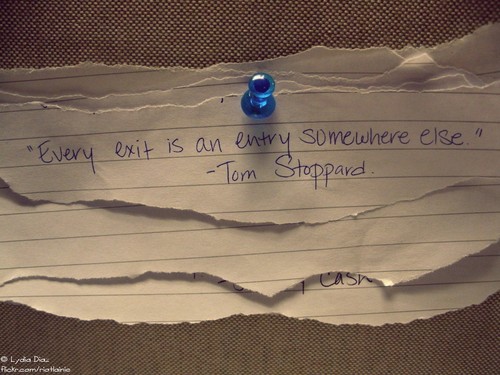 "Every exit is an entry somewhere else."
-Tom Stoppard.
Cash
© Lydia Diaz
flickr.com/riotlainie